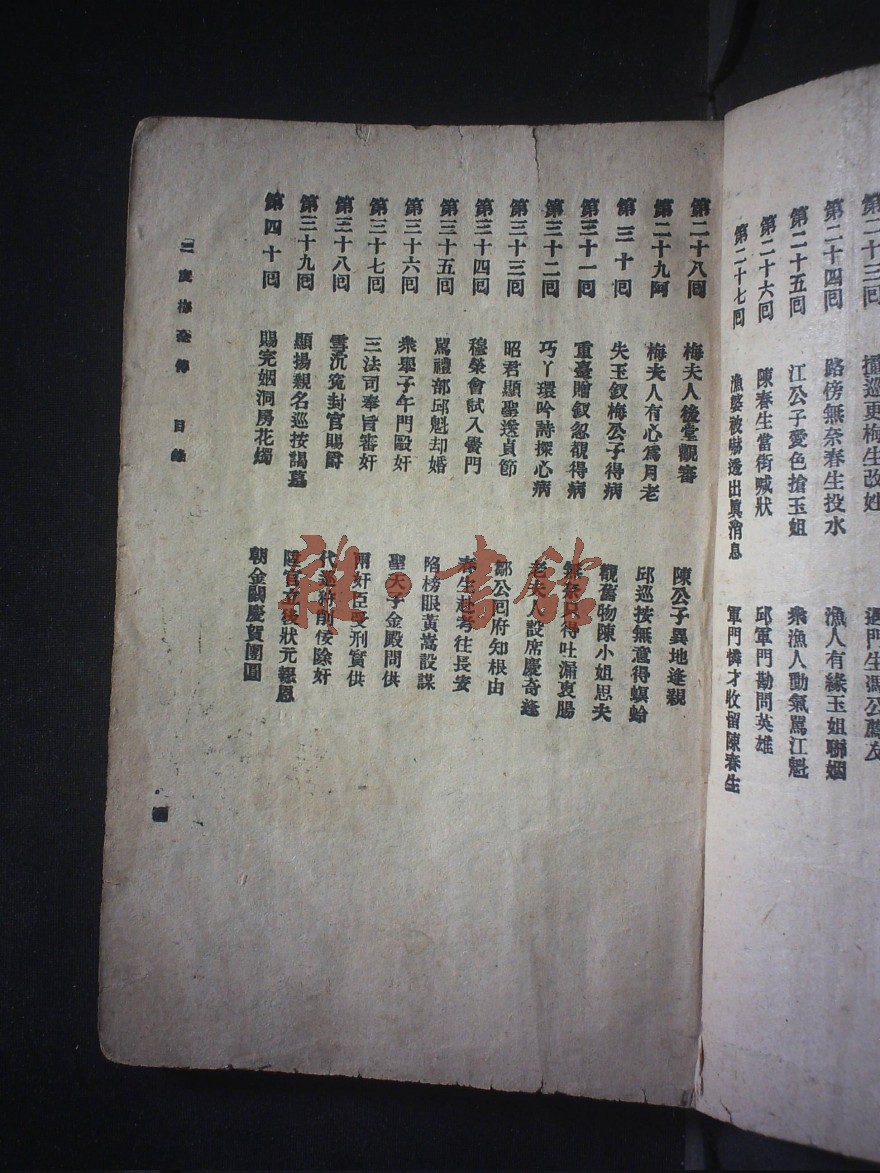 第二十三回 攔巡更梅生改姓 遇門生馮公薦友
第二十四回 路傍無奈春生投水 漁人有緣玉姐聯姻
第二十五回 江公子愛色搶玉姐 衆漁人動氣罵江魁
第二十六回 陳春生當街喊狀 邱軍門勘問英雄
第二十七回 漁婆被嚇透出眞消息 軍門憐才收留陳春生
第二十八回 梅夫人後堂觀審 陳公子異地逢親
第二十九回 梅夫人有心爲月老 邱巡按無意得螟蛉
第三十回 失玉釵梅公子得病 觀舊物陳小姐思夫
第三十一回 重臺贈釵忽覩得病 無奈只得吐漏衷腸
第三十二回 巧丫環吟詩探心病 老夫人設席慶奇逢
第三十三回 昭君顯聖送貞節 鄒公回府知根由
第三十四回 穆榮會試入黌門 春生赴考往長安
第三十五回 罵禮部邱魁却婚 陷榜眼黃嵩設謀
第三十六回 衆舉子午門毆奸 聖天子金殿問供
第三十七回 三法司奉旨審奸 兩奸臣受刑實供
第三十八回 雪沉寃封官賜爵 代巡狩前侫除奸
第三十九回 顯揚親名巡按謁墓 陞官立後狀元報恩
第四十回 賜完姻洞房花燭 朝金闕慶賀團圓
二度梅全傳 目錄
雜·書館